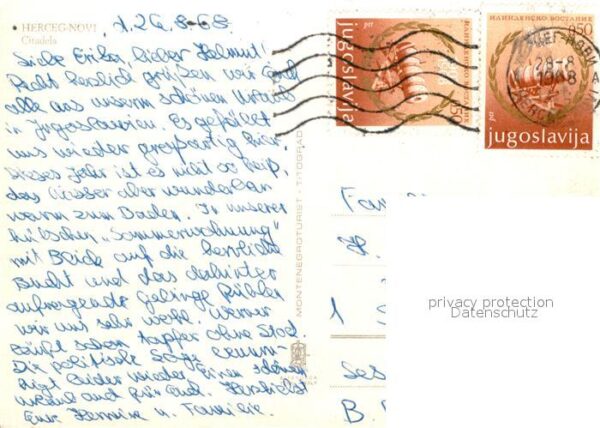 HERCEG-NOVI
Citadela
d. 26.8.68
Liebe Erika, lieber Helmut!
Recht herzlich grüßen wir Euch
alle aus unserm schönen Urlaub
in Jugoslawien. Es gefällt
uns wieder großartig hier.
Dieses Jahr ist es nicht so heiß,
das Wasser aber wunderbar
warm zum Baden. In unserer
hübschen „Sommerwohnung"
mit Blick auf die herrliche
Bucht und das dahinter
aufragende Gebirge fühlen
wir uns sehr wohl. Werner
läuft schon tapfer ohne Stock.
Die politische Lage
leider wieder. Einen schönen
Urlaub auch für Euch. Herzlichst
Eure Hermine u. Familie.
MONTENEGROTURIST - TITOGRAD
ptt
jugoslavija
0,50
ptt
jugoslavija
0,50
28-8
Fam
H.
1 S
Ses
B.
privacy protection
Datenschutz